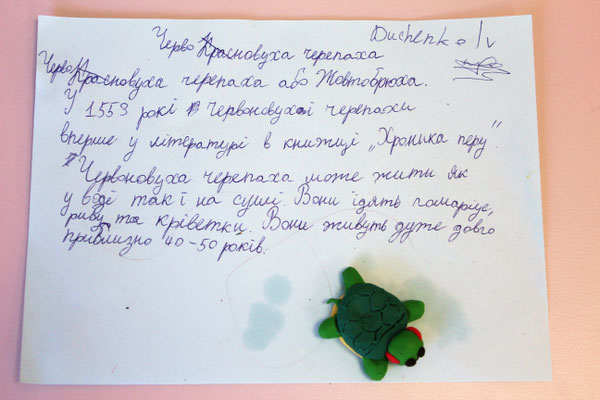 Duchenko Iv
Червоновуха черепаха
Червоновуха черепаха або Жовтобрюха.
У 1553 рокі в Червоновухої черепахи
вперше у літературі в книжиці „Хроника перу".
Червоновуха черепаха може жити як
у воді так і на суші. Вони їдять гомаріус,
рибу та кріветки. Вони живуть дуже довго
приблизно 40-50 років.